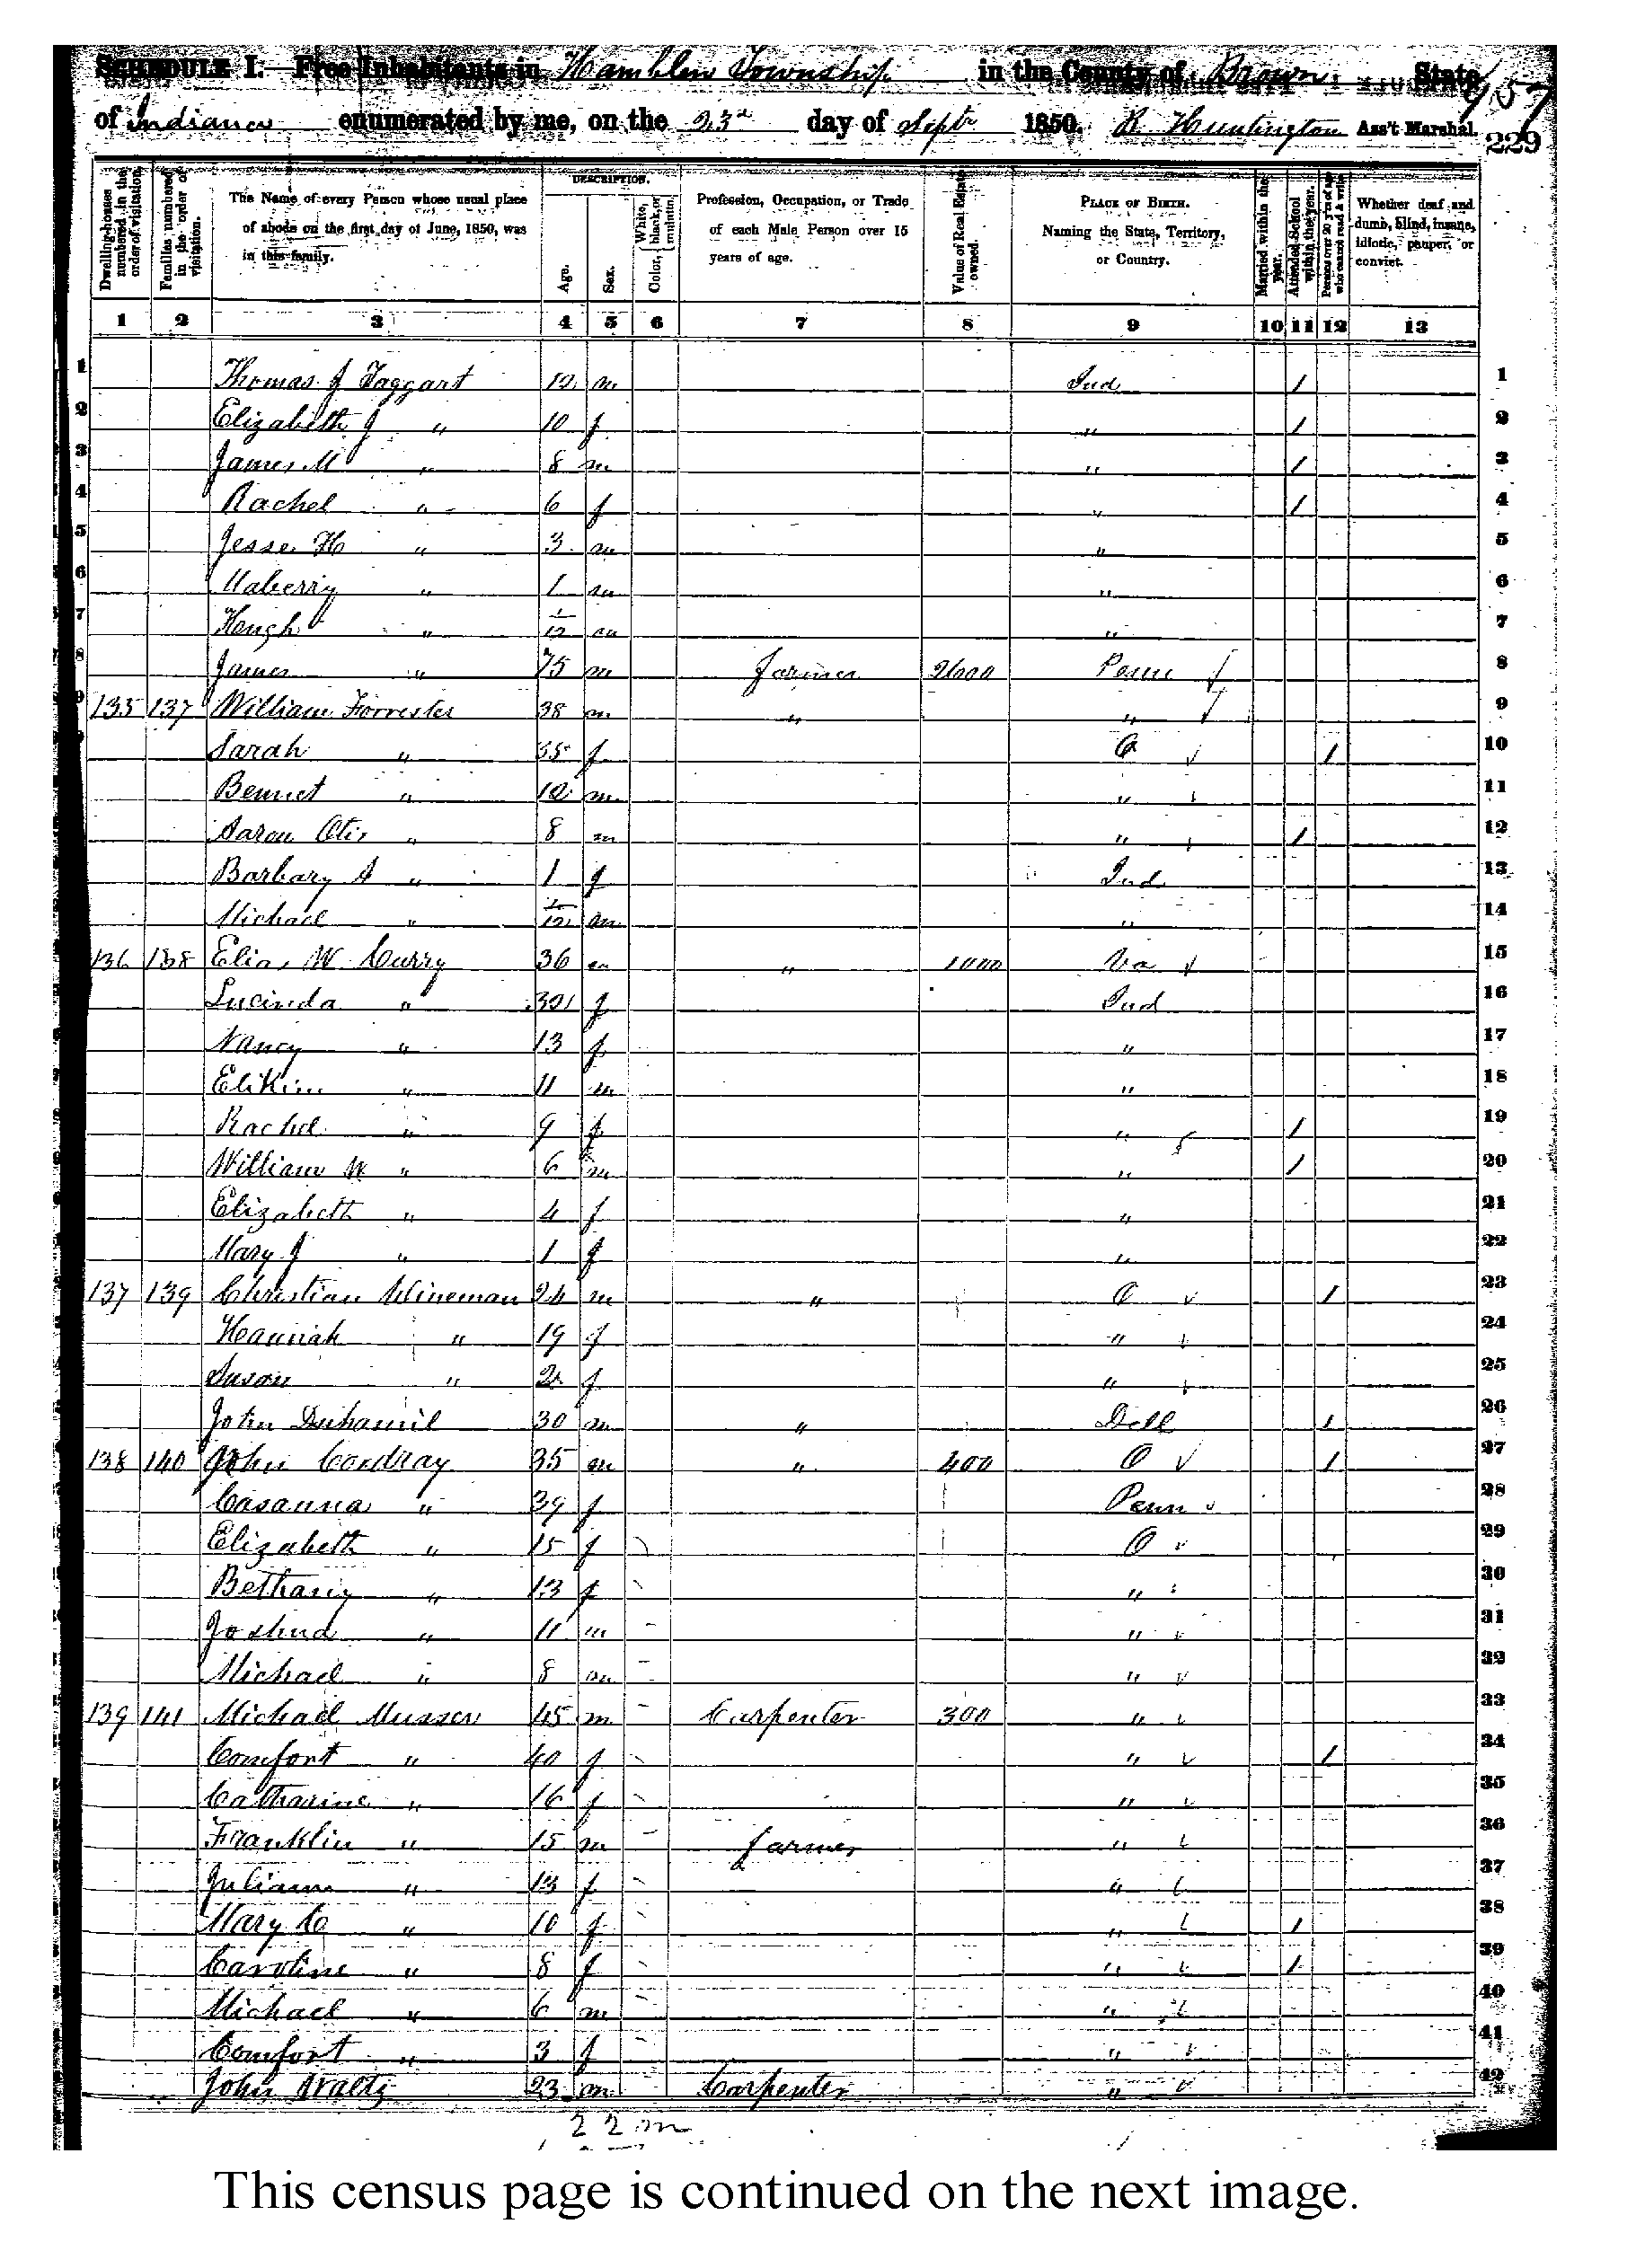 SCHEDULE I.—Free Inhabitants in Hamblen Township in the County of Brown State
of Indiana enumerated by me, on the 23d day of Septr 1850. R Huntington Ass't Marshal.
457
229
Dwelling-houses numbered in the order of visitation.
Families numbered in the order of visitation.
The Name of every Person whose usual place of abode on the first day of June, 1850, was in this family.
DESCRIPTION.
Age.
Sex.
Color, White, black, or mulatto.
Profession, Occupation, or Trade of each Male Person over 15 years of age.
Value of Real Estate owned.
PLACE OF BIRTH. Naming the State, Territory, or Country.
Married within the year.
Attended School within the year.
Persons over 20 y'rs of age who cannot read & write.
Whether deaf and dumb, blind, insane, idiotic, pauper, or convict.
1 2 3 4 5 6 7 8 9 10 11 12 13
1 Thomas J Taggart 12 m Ind / 1
2 Elizabeth J " 10 f " / 2
3 James M " 8 m " / 3
4 Rachel " 6 f " / 4
5 Jesse H " 3 m " 5
6 Maberry " 1 m " 6
7 Hough " 1/12 m " 7
8 James " 75 m farmer 2600 Penn 8
9 135 137 William Forrester 38 m " " 9
Sarah " 35 f O / 10
Bennet " 12 m " 11
Aaron Otis " 8 m " / 12
Barbary A " 1 f Ind 13
Michael " 1/12 m " 14
136 138 Elias W Curry 36 m " 1000 Va 15
Lucinda " 32 f Ind 16
Nancy " 13 f " 17
Elikim " 11 m " 18
Rachel " 9 f " / 19
William W " 6 m " / 20
Elizabeth " 4 f " 21
Mary J " 1 f " 22
137 139 Christian Wineman 24 m " O / 23
Hannah " 19 f " 24
Susan " 2 f " 25
John Duhamil 30 m " Dell / 26
138 140 John Cordray 35 m " 400 O / 27
Casanna " 39 f Penn 28
Elizabeth " 15 f O 29
Bethany " 13 f " 30
Joshua " 11 m " 31
Michael " 8 m " 32
139 141 Michael Musser 45 m Carpenter 300 " 33
Comfort " 40 f " / 34
Catharine " 16 f " 35
Franklin " 15 m farmer " 36
Juliann " 13 f " 37
Mary C " 10 f " / 38
Caroline " 8 f " / 39
Michael " 6 m " 40
Comfort " 3 f " 41
John Waltz 23 m Carpenter " 42
22 m
This census page is continued on the next image.